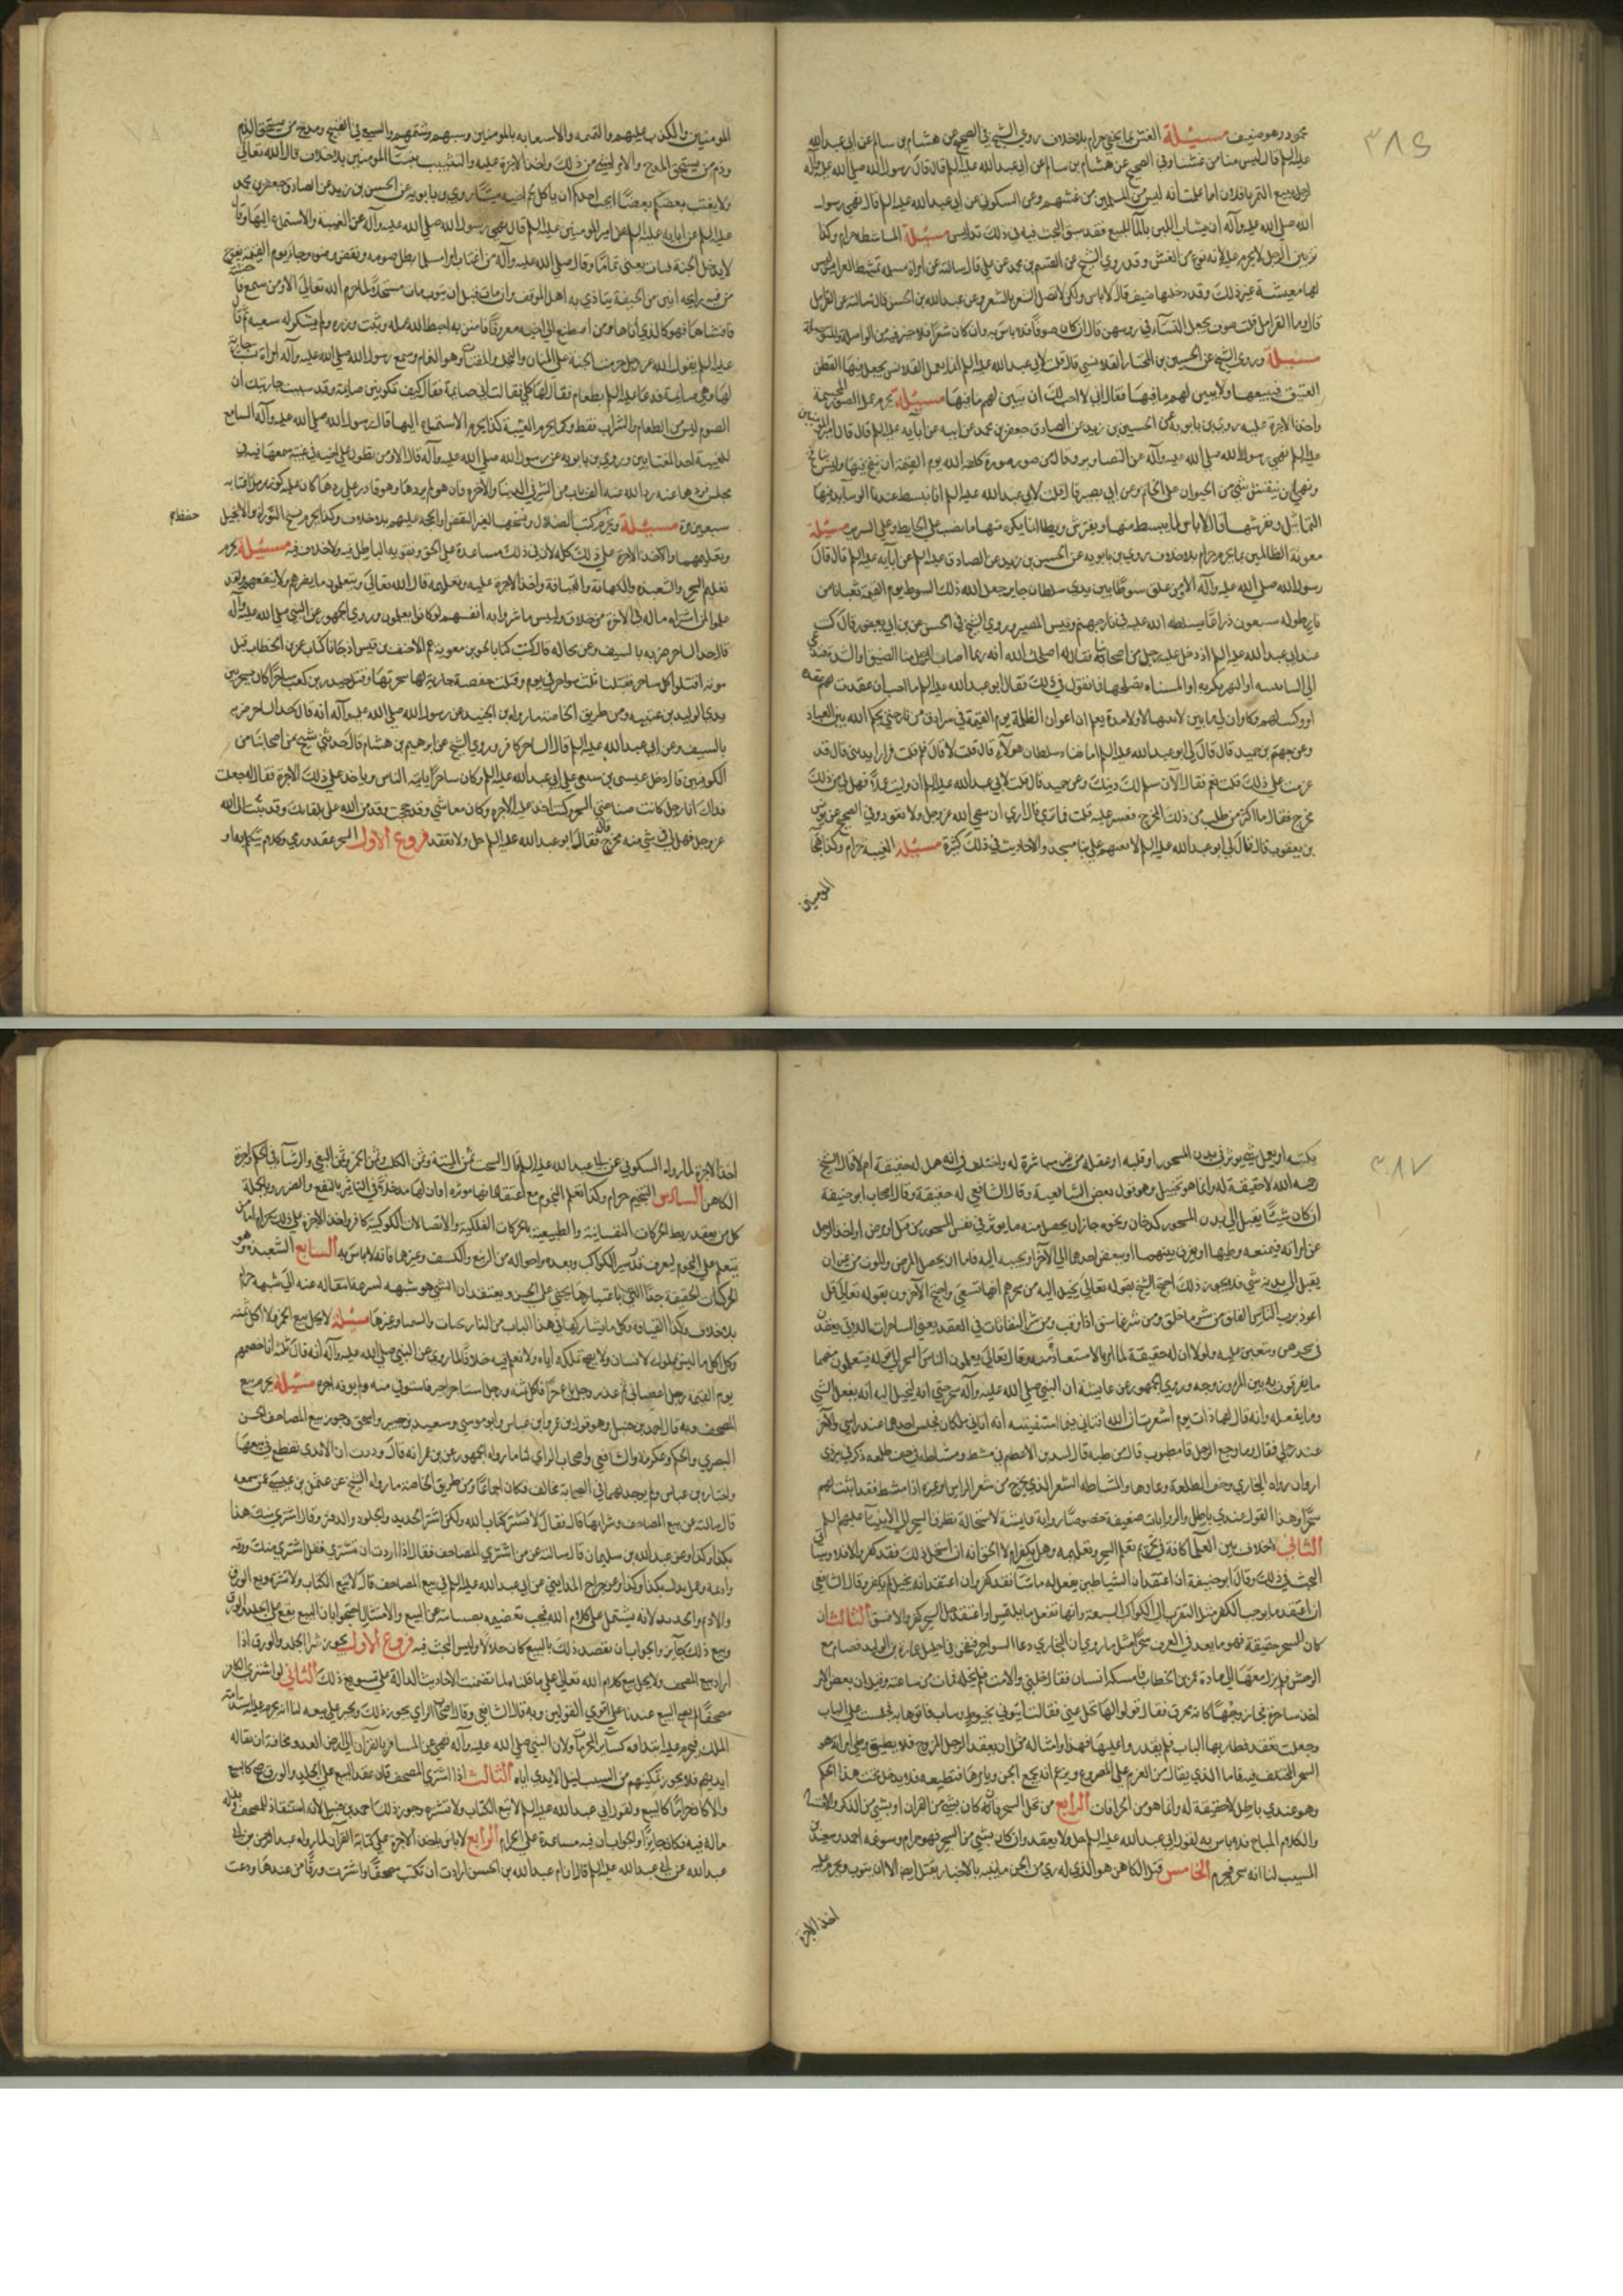 ٣٨٦
محمود وهو ضعيف مسئلة الغش بما يخفي حرام بلا خلاف روي الشيخ في الصحيح عن هشام بن سالم عن ابي عبد الله
عليه السلم قال ليس منا من غشنا وفي الصحيح عن هشام بن سالم عن ابي عبد الله عليه السلم قال قال رسول الله صلي الله عليه وآله
لرجل يبيع التمر يا فلان اما علمت انه ليس من المسلمين من غشهم وعن السكوني عن ابي عبد الله عليه السلم قال نهي رسول
الله صلي الله عليه وآله ان يشاب اللبن بالمآ للبيع فقد سبق البحث فيه في ذلك مسئلة الماشطة حرام وكذا
تزيين الرجل لانه نوع من الغش وقد روي الشيخ عن القسم بن محمد عن علي قال سالته عن امراة مسلمة تمشط العرايس ليس
لها معيشة غير ذلك وقد دخلها ضيق قال لا باس ولكن لا تصل الشعر بالشعر وعن عبد الله بن الحسن قال سالته عن القرامل
قال وما القرامل قلت صوف يجعل النسآء في روسهن قال ان كان صوفا فلا باس به وان كان شعرا فلا خير فيه من الواصلة والمتوصلة
مسئلة وروي الشيخ عن الحسين بن المختار القلانسي قال قلت لابي عبد الله عليه السلم انا نعمل القلانس نجعل فيها القطن
العتيق فنبيعها ولا نبين لهم ما فيها فقال اني لا احب لك ان تبين لهم ما فيها مسئلة يحرم عمل الصور المجسمة
واخذ الاجرة عليه روي بن بابويه عن الحسين بن زيد عن الصادق جعفر بن محمد عن ابيه عن آبايه عليه السلم قال قال امير المؤمنين
عليه السلم نهي رسول الله صلي الله عليه وآله عن التصاوير وقال من صور صورة كلفه الله يوم القيمة ان ينفخ فيها وليس بنافخ
ونهي ان ينقش شي من الحيوان علي الخاتم وعن ابي بصير قال قلت لابي عبد الله عليه السلم انا نبسط عندنا الوسايد فيها
التماثيل ونفرشها قال لا باس لما يبسط منها ويفترش ويوطا انما يكره منها ما نصب علي الحايط وعلي السرير مسئلة
معونة الظالمين بما يحرم حرام بلا خلاف روي بن بابويه عن الحسين بن زيد عن الصادق عليه السلم عن آبايه عليه السلم قال قال
رسول الله صلي الله عليه وآله الا ومن علق سوطا بين يدي سلطان جاير جعل الله ذلك السوط يوم القيمة ثعبانا من
نار طوله سبعون ذراعا يسلطه الله عليه في نار جهنم وبئس المصير وروي الشيخ في الحسن عن بن ابي يعفور قال كنت
عند ابي عبد الله عليه السلم اذ دخل عليه رجل من اصحابنا فقال له اصلحك الله انه ربما اصاب الرجل منا الضيق او الشدة فيدعي
الي البنا يبنيه او النهر يكريه او المسناه يصلحها فما تقول في ذلك فقال ابو عبد الله عليه السلم ما احب ان عقدت لهم عقدة
او وكيت لهم وكاء وان لي ما بين لابتيها لا ولا مدة بعلم ان اعوان الظلمة يوم القيمة في سرادق من نار حتي يحكم الله بين العباد
وعن جهم بن حميد قال قال لي ابو عبد الله عليه السلم اما تغشا سلطان هولاء قال قلت لا قال فلم قلت فرارا بديني قال قد
عزمت علي ذلك قلت نعم فقال الآن سلم لك دينك وعن حميد قال قلت لابي عبد الله عليه السلم اني وليت عملا فهل لي من ذلك
مخرج فقال ما اكثر من طلب من ذلك المخرج فعسر عليه قلت فما تري قال اري ان تتقي الله عز وجل ولا تعود وفي الصحيح عن يونس
بن يعقوب قال قال لي ابو عبد الله عليه السلم لا تعنهم علي بنا مسجد والاحاديث في ذلك كثيرة مسئلة الغيبة حرام وكذا هجا
المومنين
المومنين والكذب عليهم والنميمة والسعاية بالمومنين وسبهم وشتمهم والسعي في القبيح ومدح من يستحق الذم
وذم من يستحق المدح والامر بشي من ذلك واخذ الاجرة عليه والتشبيب بنسآ المومنين بلا خلاف قال الله تعالي
ولا يغتب بعضكم بعضا ايحب احدكم ان ياكل لحم اخيه ميتا روي بن بابويه عن الحسين بن زيد عن الصادق جعفر بن محمد
عليه السلم عن آبايه عليه السلم عن امير المومنين عليه السلم قال نهي رسول الله صلي الله عليه وآله عن الغيبة والاستماع اليها وقال
لا يدخل الجنة قتات يعني نماما وقال صلي الله عليه وآله من اغتاب امرا مسلما بطل صومه ونقض وضوه وجا يوم القيمة يفوح
من فيه رايحة انتن من الجيفة يتاذي به اهل الموقف وان مات قبل ان يتوب مات مستحلا لما حرم الله تعالي الا ومن سمع فاحشة
فافشاها فهو كالذي اتاها ومن اصطنع الي اخيه معروفا فامتن به احبط الله عمله وثبت وزره ولم يشكر له سعيه ثم قال
عليه السلم يقول الله عز وجل حرمت الجنة علي المنان والبخيل والقتات وهو النمام وسمع رسول الله صلي الله عليه وآله امراة تساب جارية
لها وهي صايمة فدعا عليه السلم بطعام فقال لها كلي فقالت اني صايمة فقال كيف تكونين صايمة وقد سببت جاريتك ان
الصوم ليس من الطعام والشراب فقط وكما يحرم الغيبة كذا يحرم الاستماع اليها قال رسول الله صلي الله عليه وآله السامع
للغيبة احد المغتابين وروي بن بابويه عن رسول الله صلي الله عليه وآله قال الا ومن تطول علي اخيه في غيبة سمعها فيه في
مجلس فردها عنه رد الله عنه الف باب من الشر في الدنيا والآخرة فان هو لم يردها وهو قادر علي ردها كان عليه كوزر من اغتابه
سبعين مرة مسئلة ويحرم كتب الضلال ونسخها لغير النقض او الحجة عليهم بلا خلاف وكذا يحرم نسخ التوراة والانجيل
حفظ
وتعليمهما واخذ الاجرة علي ذلك كله لان في ذلك مساعدة علي الحق وتقوية الباطل فيه ولا خلاف فيه مسئلة يحرم
تعلم السحر والشعبدة والكهانة والقيافة واخذ الاجرة عليه وتعليمه قال الله تعالي ويتعلمون ما يضرهم ولا ينفعهم ولقد
علموا لمن اشتراه ماله في الآخرة من خلاق ولبئس ما شروا به انفسهم لو كانوا يعلمون وروي الجمهور عن النبي صلي الله عليه وآله
قال حد الساحر ضربه بالسيف وعن بجالة قال كنت كاتبا لجزو بن معوية عم الاحنف بن قيس اذ جانا كتاب عمر بن الخطاب قبل
موته اقتلوا كل ساحر فقتلنا ثلث سواحر في يوم وقتلت حفصة جارية لها سحرتها وقتل جندب بن كعب ساحرا كان يسحر بين
يدي الوليد بن عقبه ومن طريق الخاصة ما رواه بن الجنيد عن رسول الله صلي الله عليه وآله انه قال حد الساحر ضربه
بالسيف وعن ابي عبد الله عليه السلم قال الساحر كافر وروي الشيخ عن ابرهيم بن هشام قال حدثني شيخ من اصحابنا من
الكوفيين قال دخل عيسي بن سيفي علي ابي عبد الله عليه السلم وكان ساحرا ياتيه الناس وياخذ علي ذلك الاجرة فقال له جعلت
فداك انا رجل كانت صناعتي السحر وكنت اخذ عليه الاجرة وكان معاشي وقد حججت وقد من الله علي بلقائك وقد تبت الي الله
عز وجل فهل لي في شي منه مخرج قال فقال ابو عبد الله عليه السلم حل ولا تعقد فروع الاول السحر عقد ورمي وكلام يتكلم به او
٣٨٧
يكتبه او يعمل شيئا يوثر في بدن المسحور او قلبه او عقله من غير مباشرة له واختلف في انه هل له حقيقة ام لا قال الشيخ
رحمه الله لا حقيقة له وانما هو تخييل وهو قول بعض الشافعية وقال الشافعي له حقيقة وقال اصحاب ابي حنيفة
ان كان شيئا يصل الي بدن المسحور كدخان ونحوه جاز ان يحصل منه ما يوثر في نفس المسحور من قتل او مرض او اخذ الرجل
عن امراته فيمنعه وطيها او يفرق بينهما او يبغض احدهما الي الآخر او يحببه اليه فاما ان يحصل المرض والموت من غير ان
يصل الي بدنه شي فلا يجوز ذلك احتج الشيخ بقوله تعالي يخيل اليه من سحرهم انها تسعي واحتج الآخرون بقوله تعالي قل
اعوذ برب الفلق من شر ما خلق ومن شر غاسق اذا وقب ومن شر النفاثات في العقد يعني الساحرات اللاتي يعقدن
في سحرهن وينفثن عليه ولولا ان له حقيقة لما امر بالاستعاذة منه وقال تعالي يعلمون الناس السحر الي قوله فيتعلمون منهما
ما يفرقون به بين المرء وزوجه وروي الجمهور عن عايشة ان النبي صلي الله عليه وآله سحر حتي انه ليخيل اليه انه يفعل الشي
وما يفعله وانه قال لها ذات يوم اشعرت ان الله افتاني فيما استفتيته انه اتاني ملكان فجلس احدهما عند راسي والآخر
عند رجلي فقال ما وجع الرجل قال مطبوب قال من طبه قال لبيد بن الاعصم في مشط ومشاطة في جف طلعة ذكر في بير ذي
اروان رواه البخاري وجف الطلعة وعاوها والمشاطة الشعر الذي يخرج من شعر الراس او غيره اذا مشط فقد اثبت لهم
سحرا وهذا القول عندي باطل والروايات ضعيفة خصوصا رواية عايشة لاستحالة تطرق السحر الي الانبيآ عليهم السلم
الثاني لا خلاف بين العلمآ كافة في تحريم تعلم السحر وتعليمه وهل يكفر ام لا الحق انه ان استحل ذلك فقد كفر والا فلا وسياتي
البحث في ذلك وقال ابو حنيفة ان اعتقد ان الشياطين يفعل له ما شآ فقد كفر وان اعتقد انه تخييل لم يكفر وقال الشافعي
ان اعتقد ما يوجب الكفر مثل التقرب الي الكواكب السبعة وانها تفعل ما يلتمس او اعتقد حل السحر كفر والا فسق الثالث ان
كان للسحر حقيقة فهو ما يعد في العرف سحرا مثل ما روي ان النجاشي دعا السواحر فنفخن في احليل عمارة بن الوليد فهام مع
الوحش فلم يزل معها الي امارة عمر بن الخطاب فامسكه انسان فقال خلني والا مت فلم يخله فمات من ساعته وقيل ان بعض الامرا
اخذ ساحرة فجا زوجها كانه محترق فقال قولوا لها تحل عني فقالت ايتوني بخيوط وباب فاتوها به فجلست علي الباب
وجعلت تعقد فطار بها الباب فلم يقدروا عليها فهذا وامثاله مثل ان يعقد الرجل المزوج فلا يطيق وطي امراته هو
السحر المختلف فيه فاما الذي يقال من العزم علي المصروع ويزعم انه يجمع الجن ويامرها فتطيعه فلا يدخل تحت هذا الحكم
وهو عندي باطل لا حقيقة له وانما هو من الخرافات الرابع من يحل السحر فانه ان كان بشي من القرآن او بشي من الذكر والاقسام
والكلام المباح فلا باس به لقول ابي عبد الله عليه السلم حل ولا تعقد وان كان بشي من السحر فهو حرام وسوغه احمد وسعيد بن
المسيب لنا انه سحر فيحرم الخامس قيل الكاهن هو الذي له رءي من الجن ياتيه بالاخبار يقتل ايضا الا ان يتوب ويحرم عليه
اخذ الاجرة
اخذ الاجرة لما رواه السكوني عن ابي عبد الله عليه السلم قال السحت ثمن الميتة وثمن الكلب وثمن الخمر وثمن البغي والرشآ في الحكم واجرة
الكاهن السادس التنجيم حرام وكذا تعلم النجوم مع اعتقاد انها موثرة او ان لها مدخلا في التاثير بالنفع والضرر وبالجملة
كل من يعتقد ربط الحركات النفسانية والطبيعية بالحركات الفلكية والاتصالات الكوكبية كافر واخذ الاجرة علي ذلك حرام اما من
يتعلم علي النجوم ليعرف قدر سير الكواكب وبعده واحواله من التربيع والكسف وغيرهما فانه لا باس به السابع الشعبدة وهو
الحركات الخفيفة جدا التي باعتبارها يخفي علي الحس ويعتقد ان الشي هو شبهه لسرعة انتقاله عنه الي شبهه حرام
بلا خلاف وكذا القيافة وكل ما يشاركها في هذا الباب من النارنجيات والسيميا وغيرها مسئلة لا يحل بيع الحر ولا اكل ثمنه
وكل ما ليس بمملوك لانسان ولا يصح تملكه اياه ولا نعلم فيه خلافا لما روي عن النبي صلي الله عليه وآله انه قال ثلثة انا خصمهم
يوم القيمة رجل اعطي بي ثم غدر ورجل باع حرا فاكل ثمنه ورجل استاجر اجيرا فاستوفي منه ولم يوفه اجره مسئلة يحرم بيع
المصحف وبه قال احمد بن حنبل وهو قول بن عمر وابن عباس وابو موسي وسعيد بن جبير واسحق وجوز بيع المصاحف الحسن
البصري والحكم وعكرمة والشافعي واصحاب الراي لنا ما رواه الجمهور عن بن عمر انه قال وددت ان الايدي تقطع في بيعها
واختاره بن عباس ولم يوجد لهما في الصحابة مخالف فكان اجماعا ومن طريق الخاصة ما رواه الشيخ عن عثمن بن عيسي عن سمعه
قال سالته عن بيع المصاحف وشرايها قال فقال لا تشتر كتاب الله ولكن اشتر الحديد والجلود والدفتر وقال اشتري منك هذا
بكذا وكذا وعن عبد الله بن سليمان قال سالته عن من اشتري المصاحف فقال اذا اردت ان تشتري فقل اشتري منك ورقه
واديمه وعمل يدك بكذا وكذا وعن جراح المدايني عن ابي عبد الله عليه السلم في بيع المصاحف قال لا تبع الكتاب ولا تشتره وبع الورق
والاديم والحديد لانه يشتمل علي كلام الله فيجب تعظيمه بصيانته عن البيع والامتثال احتجوا بان البيع يقع علي الجلد والورق
وبيع ذلك جايز والجواب ان بقصد ذلك بالبيع كان حلالا وليس البحث فيه فروع الاول يجوز شرا الجلد والورق اذا
اراد بيع المصحف ولا يحل بيع كلام الله تعالي علي ما قلناه لما تضمنت الاحاديث الدالة علي تسويغ ذلك الثاني لو اشتري الكافر
مصحفا لم يصح البيع عندنا علي اقوي القولين وبه قال الشافعي وقال اصحاب الراي يجوز ذلك ويجبر علي بيعه لنا انه يحرم عليه استدامة
الملك فيحرم عليه ابتداوه كساير المحرمات ولان النبي صلي الله عليه وآله نهي عن المسافر بالقرآن الي ارض العدو مخافة ان يناله
ايديهم فلا يجوز تمكينهم من السبب لنيل الايدي اياه الثالث اذا اشتري المصحف فان عقد البيع علي الجلد والورق صح كالبيع
والا كان حراما كالبيع ولقول ابي عبد الله عليه السلم لا تبع الكتاب ولا تشتره وجوز ذلك احمد بن حنبل لانه استنقاذ للمصحف فبذله
ماله فيه فكان جايزا والجواب ان فيه مساعدة علي الحرام الرابع لا باس باخذ الاجرة علي كتابة القرآن لما رواه عبد الرحمن بن ابي
عبد الله عن ابي عبد الله عليه السلم قال ان ام عبد الله بن الحسن ارادت ان تكتب مصحفا واشترت ورقا من عندها ودعت